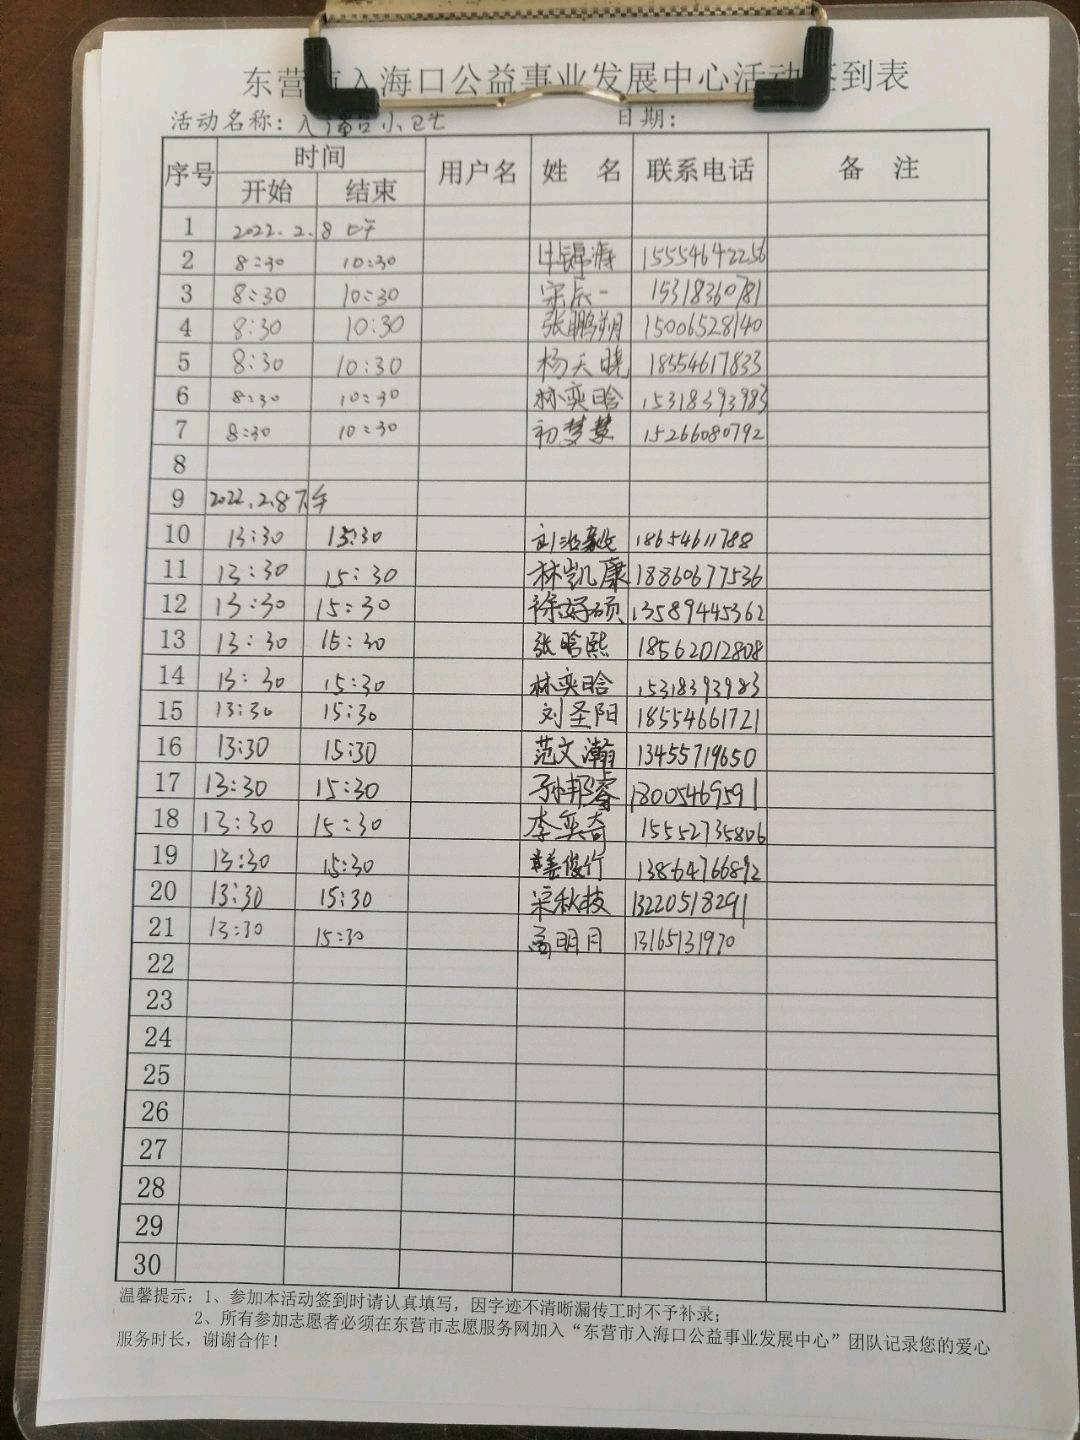 东营市入海口公益事业发展中心活动签到表
活动名称：入海口小卫士 日期：
序号 时间 用户名 姓 名 联系电话 备 注
开始 结束
1 2022.2.8 上午
2 8:30 10:30 牛锦涛 15554642256
3 8:30 10:30 宋辰一 15318360781
4 8:30 10:30 张鹏翔 15006528140
5 8:30 10:30 杨天晓 18554617833
6 8:30 10:30 林奕晗 15318393983
7 8:30 10:30 初梦慧 15266080792
8
9 2022.2.8下午
10 13:30 15:30 刘 18654611788
11 13:30 15:30 林凯康 18860677536
12 13:30 15:30 徐好硕 13589445362
13 13:30 15:30 张晗熙 18562012808
14 13:30 15:30 林奕晗 15318393983
15 13:30 15:30 刘圣阳 18554661721
16 13:30 15:30 范文瀚 13455719650
17 13:30 15:30 孙邦睿 18005469591
18 13:30 15:30 李奕奇 15552735806
19 13:30 15:30 姜俊竹 13864766892
20 13:30 15:30 宋秋枝 13220518291
21 13:30 15:30 高明月 13165131970
22
23
24
25
26
27
28
29
30
温馨提示：1、参加本活动签到时请认真填写，因字迹不清晰漏传工时不予补录；
2、所有参加志愿者必须在东营市志愿服务网加入“东营市入海口公益事业发展中心”团队记录您的爱心
服务时长，谢谢合作！